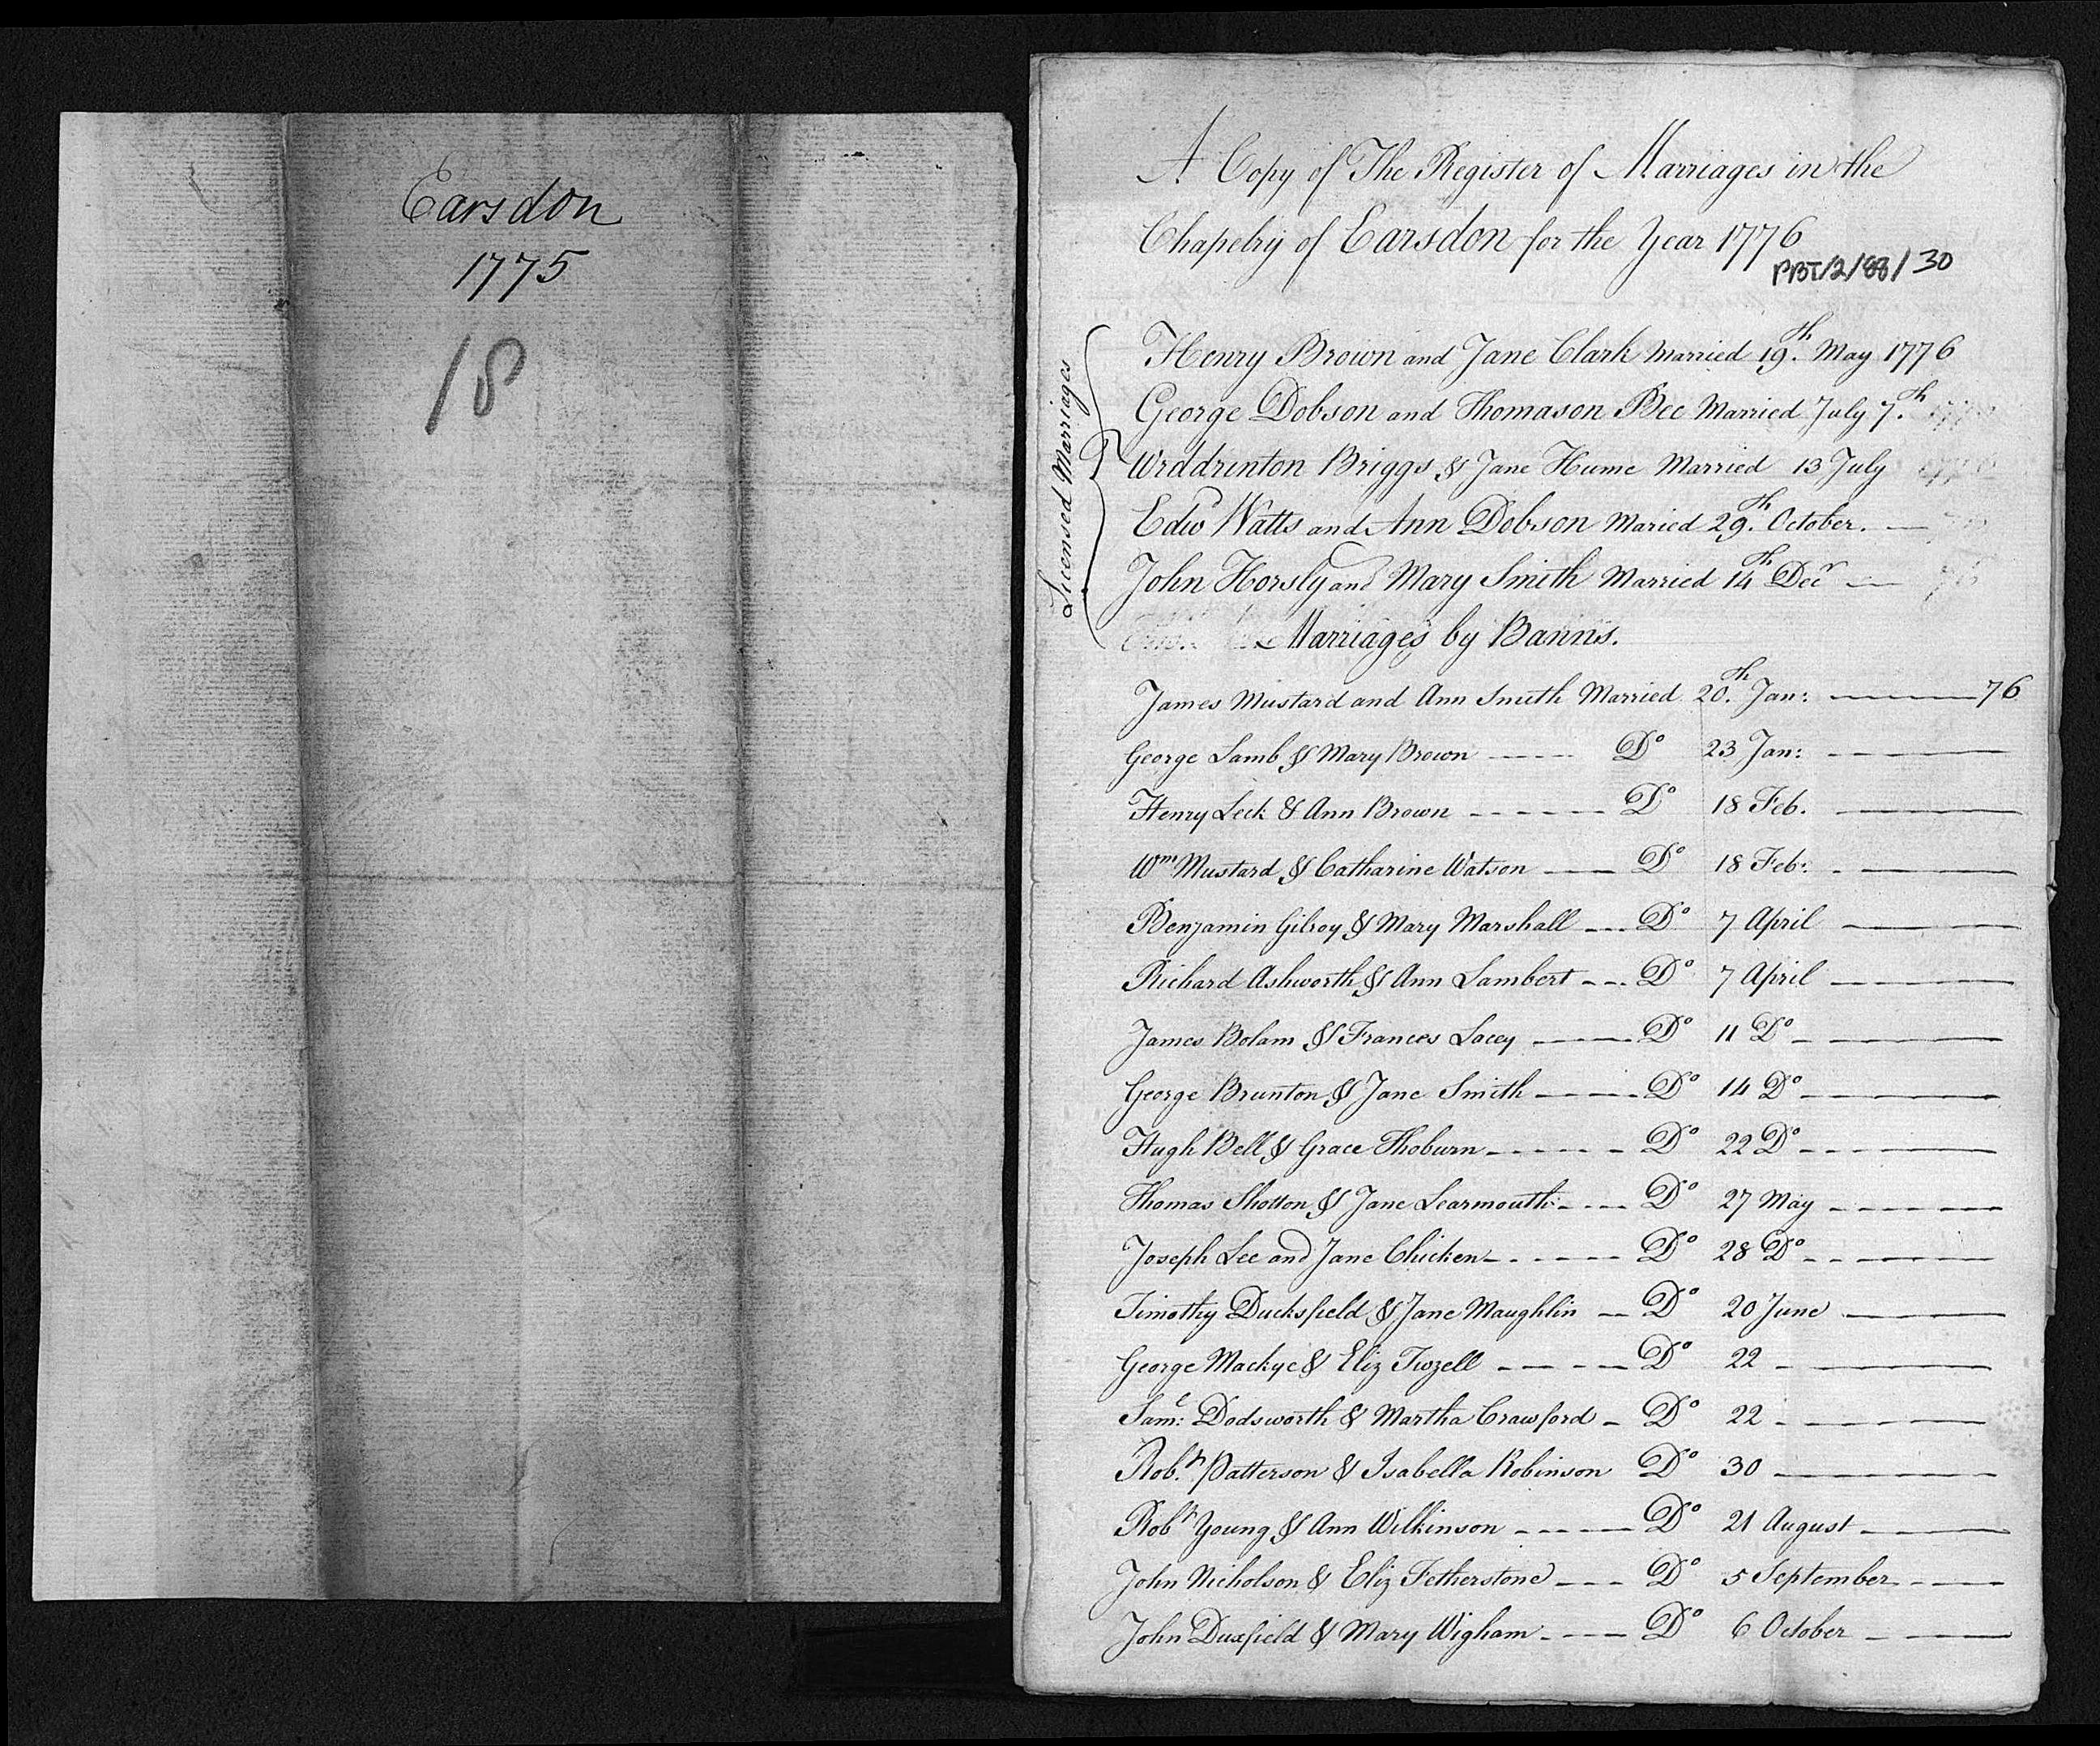 Earsdon
1775
18
A Copy of The Register of Marriages in the
Chapelry of Earsdon for the Year 1776
PBT/2/88/30
Licensed Marriages
Henry Brown and Jane Clark Married 19.th May 1776
George Dobson and Thomason Bee Married July 7.th
Widdrinton Briggs & Jane Hume Married 13 July
Edwd Watts and Ann Dobson Maried 29.th October. —
John Horsly and Mary Smith Married 14th Decr — 76
Marriages by Banns.
James Mustard and Ann Smith Married 20.th Jan: — 76
George Lamb & Mary Brown — Do 23 Jan: —
Henry Leck & Ann Brown — Do 18 Feb. —
Wm Mustard & Catharine Watson — Do 18 Feb: —
Benjamin Gilroy & Mary Marshall — Do 7 April —
Richard Ashworth & Ann Lambert — Do 7 April —
James Bolam & Frances Lacey — Do 11 Do —
George Brunton & Jane Smith — Do 14 Do —
Hugh Bell & Grace Thoburn — Do 22 Do —
Thomas Shotton & Jane Learmouth — Do 27 May —
Joseph Lee and Jane Chicken — Do 28 Do —
Timothy Ducksfield & Jane Maughlin — Do 20 June —
George Mackye & Eliz Twzell — Do 22 —
Saml: Dodsworth & Martha Crawford — Do 22 —
Rob.t Patterson & Isabella Robinson Do 30 —
Robt Young & Ann Wilkinson — Do 21 August —
John Nicholson & Eliz Fetherstone — Do 5 September —
John Duxfield & Mary Wigham — Do 6 October —